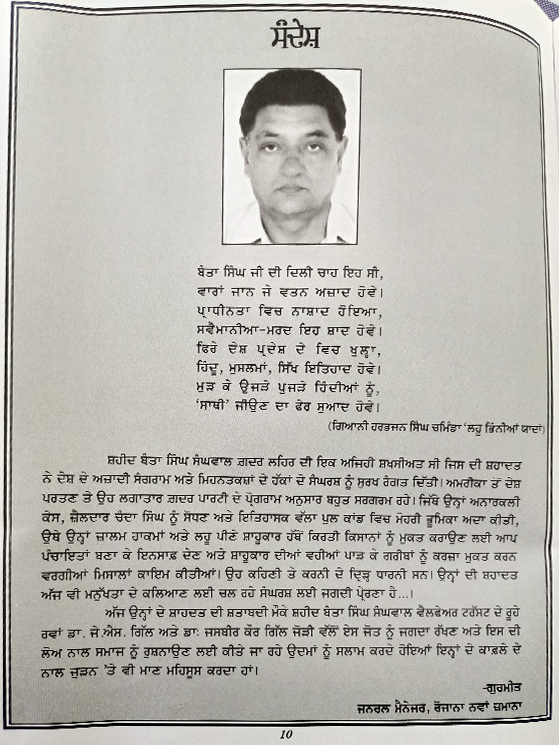 ਸੰਦੇਸ਼
ਬੰਤਾ ਸਿੰਘ ਜੀ ਦੀ ਦਿਲੀ ਚਾਹ ਇਹ ਸੀ,
ਵਾਰਾਂ ਜਾਨ ਜੇ ਵਤਨ ਅਜ਼ਾਦ ਹੋਵੇ।
ਪ੍ਰਾਧੀਨਤਾ ਵਿਚ ਨਾਸ਼ਾਦ ਹੋਇਆ,
ਸਵੈਮਾਨੀਆ-ਮਰਦ ਇਹ ਸ਼ਾਦ ਹੋਵੇ।
ਫਿਰੇ ਦੇਸ਼ ਪ੍ਰਦੇਸ਼ ਦੇ ਵਿਚ ਖੁਲ੍ਹਾ,
ਹਿੰਦੂ, ਮੁਸਲਮਾਂ, ਸਿੱਖ ਇਤਿਹਾਦ ਹੋਵੇ।
ਮੁੜ ਕੇ ਉਜੜੇ ਪੁਜੜੇ ਹਿੰਦੀਆਂ ਨੂੰ,
'ਸਾਥੀ' ਜੀਉਣ ਦਾ ਫੇਰ ਸੁਆਦ ਹੋਵੇ।
(ਗਿਆਨੀ ਹਰਭਜਨ ਸਿੰਘ ਚਮਿੰਡਾ 'ਲਹੂ ਭਿੰਨੀਆਂ ਯਾਦਾਂ)
ਸ਼ਹੀਦ ਬੰਤਾ ਸਿੰਘ ਸੰਘਵਾਲ ਗ਼ਦਰ ਲਹਿਰ ਦੀ ਇਕ ਅਜਿਹੀ ਸ਼ਖਸੀਅਤ ਸੀ ਜਿਸ ਦੀ ਸ਼ਹਾਦਤ
ਨੇ ਦੇਸ਼ ਦੇ ਅਜ਼ਾਦੀ ਸੰਗਰਾਮ ਅਤੇ ਮਿਹਨਤਕਸ਼ਾਂ ਦੇ ਹੱਕਾਂ ਦੇ ਸੰਘਰਸ਼ ਨੂੰ ਸੁਰਖ ਰੰਗਤ ਦਿੱਤੀ। ਅਮਰੀਕਾ ਤੋਂ ਦੇਸ਼
ਪਰਤਣ ਤੇ ਉਹ ਲਗਾਤਾਰ ਗ਼ਦਰ ਪਾਰਟੀ ਦੇ ਪ੍ਰੋਗਰਾਮ ਅਨੁਸਾਰ ਬਹੁਤ ਸਰਗਰਮ ਰਹੇ। ਜਿੱਥੇ ਉਨ੍ਹਾਂ ਅਨਾਰਕਲੀ
ਕੇਸ, ਜ਼ੈਲਦਾਰ ਚੰਦਾ ਸਿੰਘ ਨੂੰ ਸੋਧਣ ਅਤੇ ਇਤਿਹਾਸਕ ਵੱਲਾ ਪੁਲ ਕਾਂਡ ਵਿਚ ਮੋਹਰੀ ਭੂਮਿਕਾ ਅਦਾ ਕੀਤੀ,
ਉਥੇ ਉਨ੍ਹਾਂ ਜ਼ਾਲਮ ਹਾਕਮਾਂ ਅਤੇ ਲਹੂ ਪੀਣੇ ਸ਼ਾਹੂਕਾਰ ਹੱਥੋਂ ਕਿਰਤੀ ਕਿਸਾਨਾਂ ਨੂੰ ਮੁਕਤ ਕਰਾਉਣ ਲਈ ਆਪ
ਪੰਚਾਇਤਾਂ ਬਣਾ ਕੇ ਇਨਸਾਫ਼ ਦੇਣ ਅਤੇ ਸ਼ਾਹੂਕਾਰ ਦੀਆਂ ਵਹੀਆਂ ਪਾੜ ਕੇ ਗਰੀਬਾਂ ਨੂੰ ਕਰਜ਼ਾ ਮੁਕਤ ਕਰਨ
ਵਰਗੀਆਂ ਮਿਸਾਲਾਂ ਕਾਇਮ ਕੀਤੀਆਂ। ਉਹ ਕਹਿਣੀ ਤੇ ਕਰਨੀ ਦੇ ਦ੍ਰਿੜ੍ਹ ਧਾਰਨੀ ਸਨ। ਉਨ੍ਹਾਂ ਦੀ ਸ਼ਹਾਦਤ
ਅੱਜ ਵੀ ਮਨੁੱਖਤਾ ਦੇ ਕਲਿਆਣ ਲਈ ਚਲ ਰਹੇ ਸੰਘਰਸ਼ ਲਈ ਜਗਦੀ ਪ੍ਰੇਰਣਾ ਹੈ...।
ਅੱਜ ਉਨ੍ਹਾਂ ਦੇ ਸ਼ਾਹਦਤ ਦੀ ਸ਼ਤਾਬਦੀ ਮੌਕੇ ਸ਼ਹੀਦ ਬੰਤਾ ਸਿੰਘ ਸੰਘਵਾਲ ਵੈਲਫੇਅਰ ਟਰੱਸਟ ਦੇ ਰੂਹੇ
ਰਵਾਂ ਡਾ. ਜੇ.ਐਸ. ਗਿੱਲ ਅਤੇ ਡਾ: ਜਸਬੀਰ ਕੌਰ ਗਿੱਲ ਜੋੜੀ ਵੱਲੋਂ ਏਸ ਜੋਤ ਨੂੰ ਜਗਦਾ ਰੱਖਣ ਅਤੇ ਇਸ ਦੀ
ਲੋਅ ਨਾਲ ਸਮਾਜ ਨੂੰ ਰੁਸ਼ਨਾਉਣ ਲਈ ਕੀਤੇ ਜਾ ਰਹੇ ਉਦਮਾਂ ਨੂੰ ਸਲਾਮ ਕਰਦੇ ਹੋਇਆਂ ਇਨ੍ਹਾਂ ਦੇ ਕਾਫ਼ਲੇ ਦੇ
ਨਾਲ ਜੁੜਨ 'ਤੇ ਵੀ ਮਾਣ ਮਹਿਸੂਸ ਕਰਦਾ ਹਾਂ।
-ਗੁਰਮੀਤ
ਜਨਰਲ ਮੈਨੇਜਰ, ਰੋਜਾਨਾ ਨਵਾਂ ਜ਼ਮਾਨਾ
10